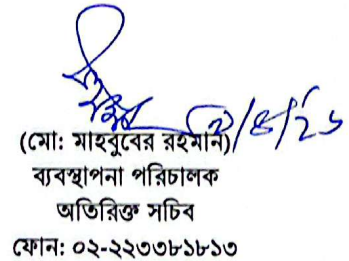 (মো: মাহবুবের রহমান)
ব্যবস্থাপনা পরিচালক
অতিরিক্ত সচিব
ফোন: ০২-২২৩৩৮১৮১৩